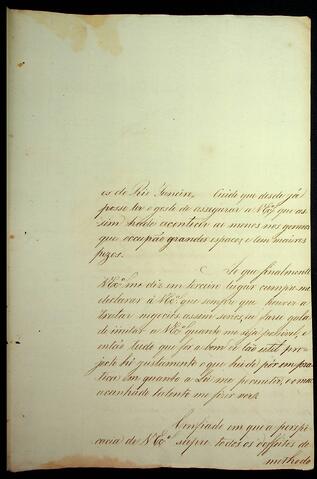 es do Rio Janeiro. Creio que desde já
posso ter o gosto de assegurar a VEx.ª que as
sim hade acontecer ao menos nos generos
que occupão grandes espaços, e tem maiores
pezos.
Ao que finalmente
VEx.ª me diz em terceiro lugar cumpre-me
declarar á VEx.ª que sempre que houver a
tratar negocios assim serios, eu farei gala
de imitar a VEx.ª quanto me seja possivel, e
então tudo que for a bem do tão util pro
jecto foi justamente o que hei de pôr em pra
tica em quanto a Lei me permitir, e o meu
acanhado talento me fizer vêr.
Confiado em que a perspi
cacia de VEx.ª supre todos os deffeitos do
methodo